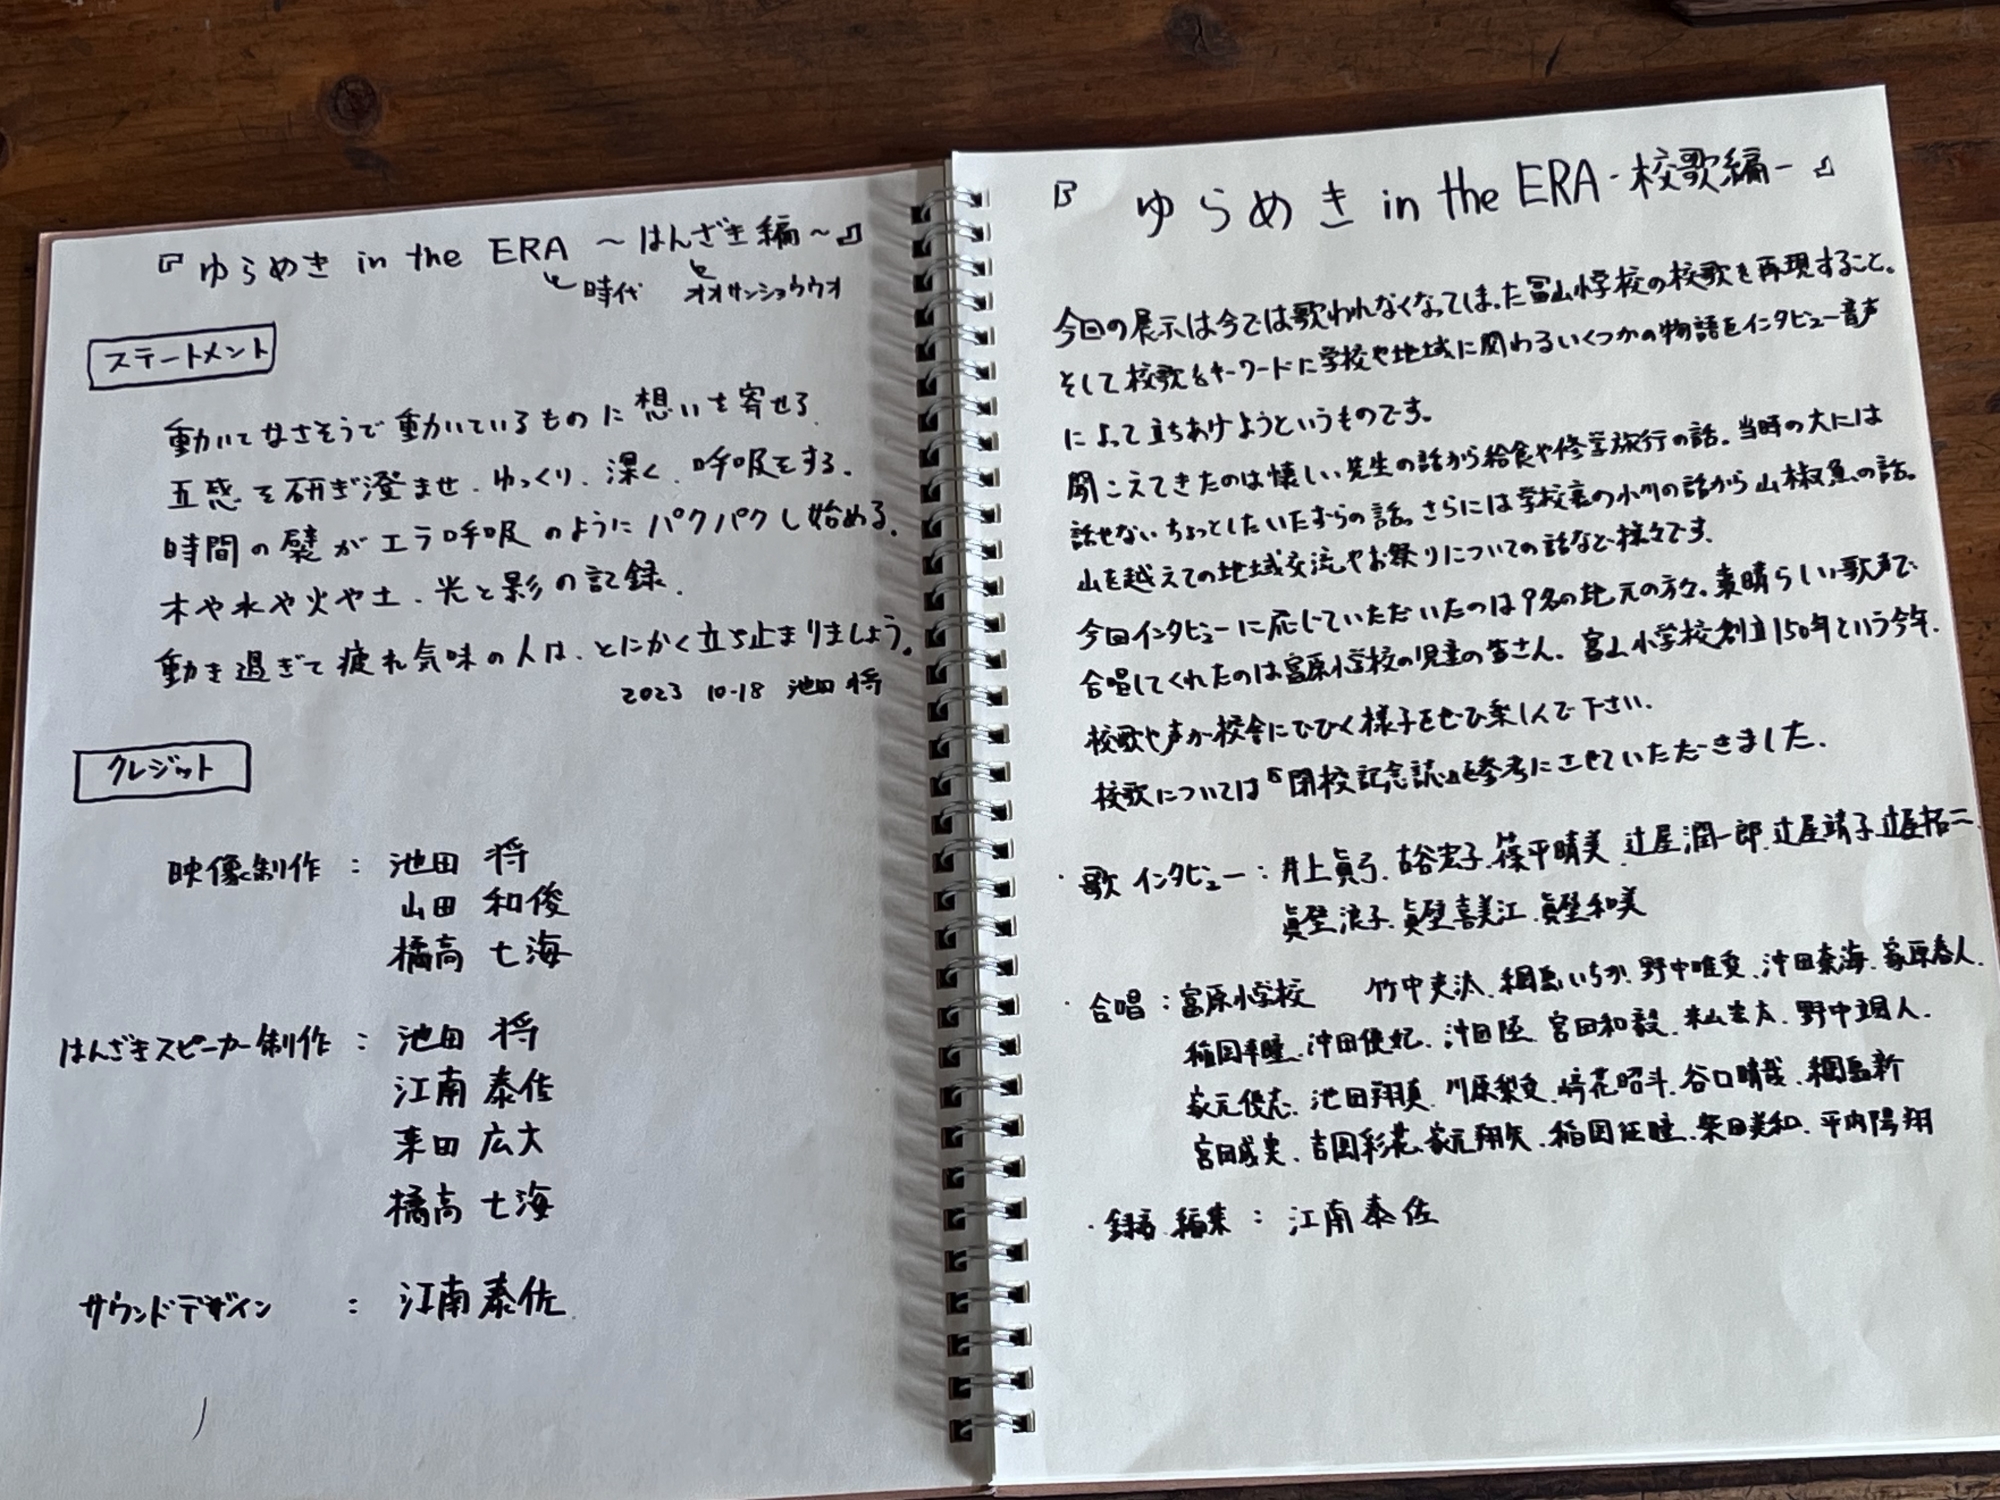 『ゆらめき in the ERA 〜はんざき編〜』
時代 オオサンショウウオ
ステートメント
動いてなさそうで動いているものに想いを寄せる
五感を研ぎ澄ませ、ゆっくり、深く、呼吸をする。
時間の襞がエラ呼吸のようにパクパクし始める。
木や水や火や土、光と影の記録。
動き過ぎて疲れ気味の人は、とにかく立ち止まりましょう。
2023 10-18 池田 将
クレジット
映像制作 : 池田 将
山田 和俊
橘高 七海
はんざきスピーカー制作 : 池田 将
江南 泰佐
来田 広大
橘高 七海
サウンドデザイン : 江南泰佐
『ゆらめき in the ERA - 校歌編 - 』
今回の展示は今では歌われなくなってしまった冨山小学校の校歌を再現すること。
そして校歌をキーワードに学校や地域に関わるいくつかの物語をインタビュー音声
によって立ちあげようというものです。
聞こえてきたのは懐しい先生の話から給食や修学旅行の話。当時の大には
話せないちょっとしたいたずらの話。さらには学校裏の小川の話から山椒魚の話。
山を越えての地域交流やお祭りについての話など様々です。
今回インタビューに応じていただいたのは9名の地元の方々。素晴らしい歌声で
合唱してくれたのは富原小学校の児童の皆さん。富山小学校創立150年という今年、
校歌や声が校舎にひびく様子をぜひ楽しんで下さい。
校歌については『閉校記念誌』を参考にさせていただきました。
・歌 インタビュー : 井上眞弓、古谷宏子、篠平晴美、辻屋潤一郎、辻屋靖子、辻屋拓二、
眞壁浪子、眞壁喜美江、眞壁和美
・合唱 : 富原小学校 綱島いちか、野中唯愛、沖田奈海、家原春人、
沖田優妃、沖田陸、宮田和毅、野中颯人、
家元優志、池田翔真、川原梨愛、谷口晴哉、綱島新
吉岡彩花、家元翔矢、柴田美和、平内陽翔
・録音 編集 : 江南泰佐